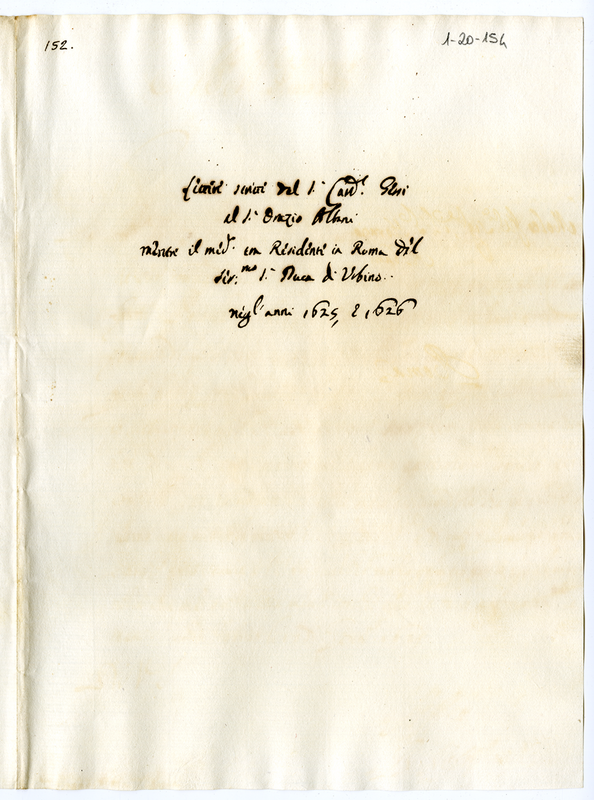 152.
1-20-154
Lettere scritte dal S.r Card.l Gessi
al S.r Orazio Albani
mentre il med.o era Residente in Roma del
Ser.mo S.r Duca di Urbino..
negl'anni 1625, e 1626